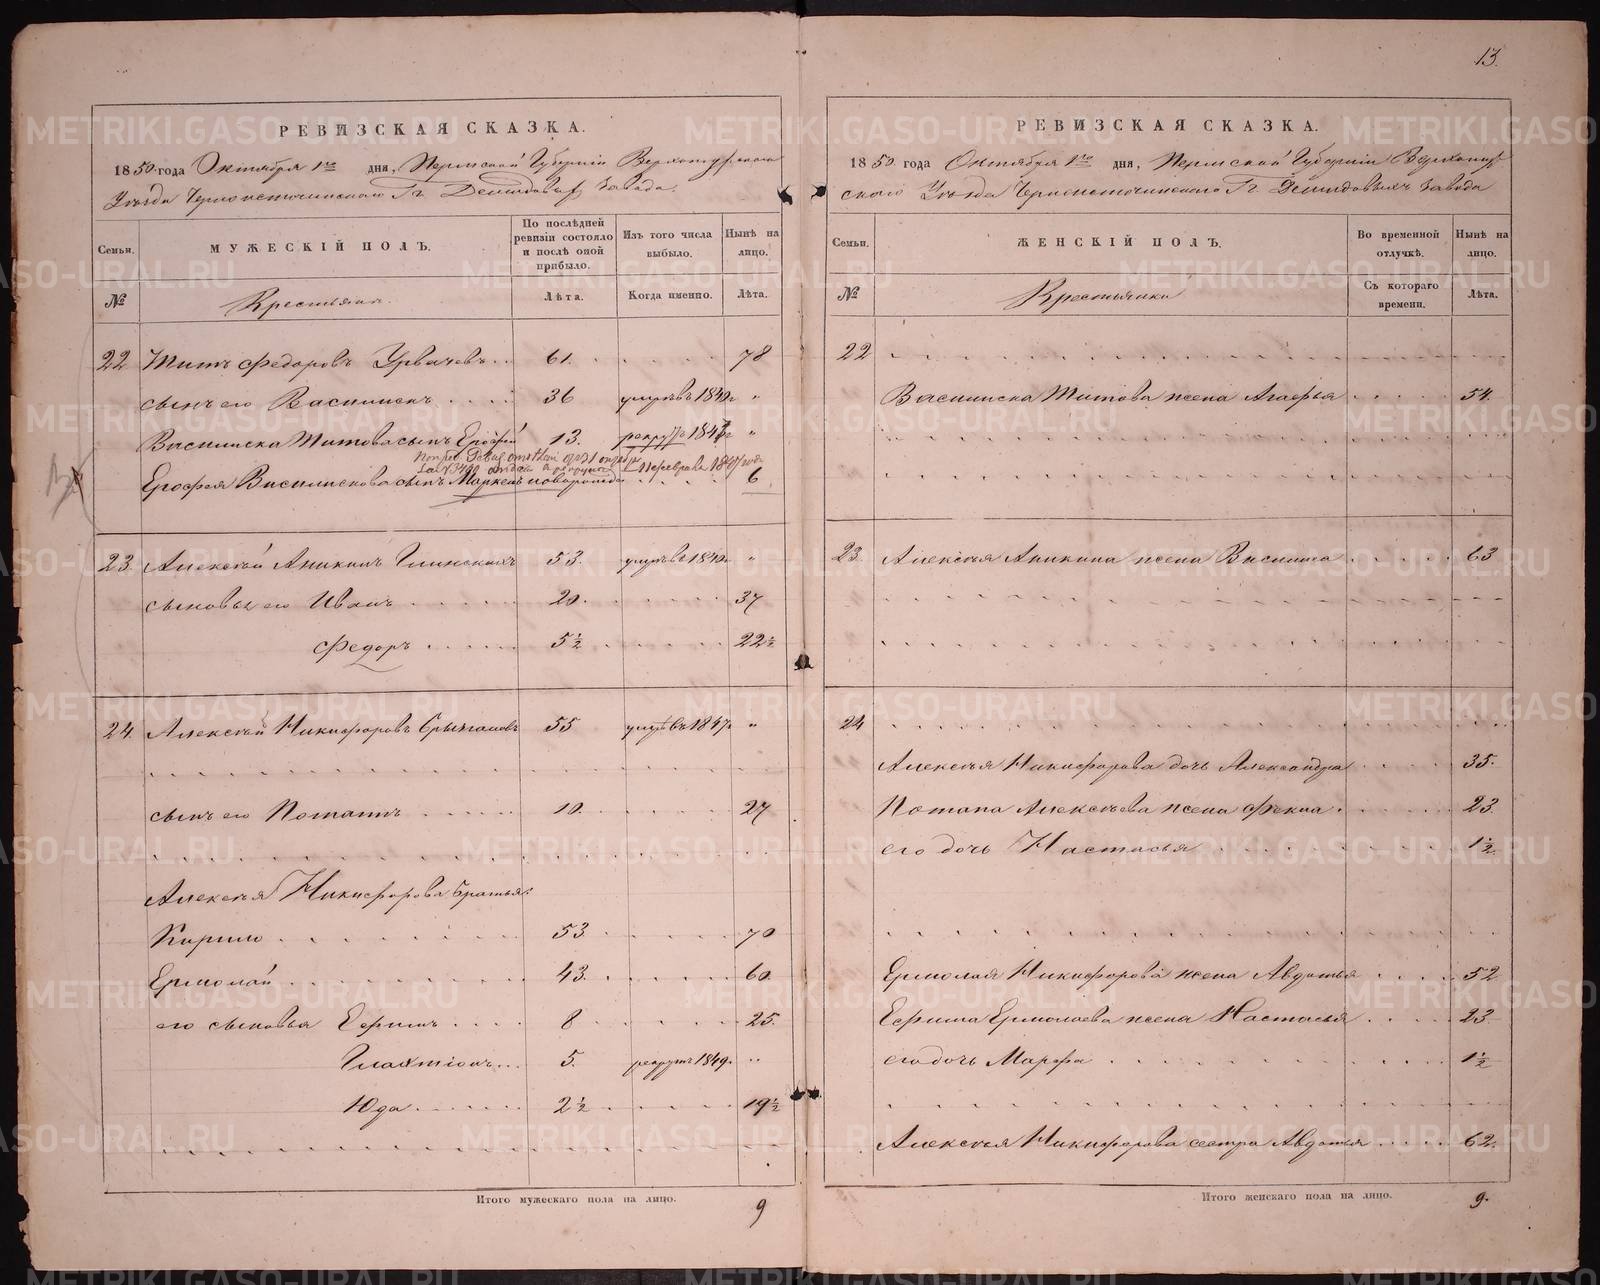 13.
РЕВИЗСКАЯ СКАЗКА.
1850 года Октября 1го дня, Пермской Губерніи Верхотурскаго
Уѣзда Черноисточинскаго Гг Демидовыхъ завода.
Семьи.
МУЖЕСКІЙ ПОЛЪ.
По послѣдней ревизіи состояло и послѣ оной прибыло.
Изъ того числа выбыло.
Нынѣ на лицо.
№
Крестьяне.
Лѣта.
Когда именно.
Лѣта.
22 Титъ Федоровъ Урванцевъ 61. 78
сынъ его Василискъ 36 умеръ въ 184 "
Василиска Титова сынъ Ерофей 13. рекрутъ 1847 "
Ерофея Василискова сынъ Маркелъ новорожде 6
23. Алексѣй Аникинъ Глинскихъ 53. умеръ въ 184 "
сыновья его Иванъ 20. 37
Федоръ 5½ 22½
24. Алексѣй Никифоровъ 55 умеръ въ 1847 "
сынъ его Потапъ 10. 27
Алексѣя Никифорова братья:
Кирило 53 70
Ермолай 43. 60
его сыновья Ефимъ 8 25.
Галахтіонъ 5. рекрутъ 1849. "
Юда 2½ 19½
Итого мужескаго пола на лицо. 9
РЕВИЗСКАЯ СКАЗКА.
1850 года Октября 1го дня, Пермской Губерніи Верхотур
скаго Уѣзда Черноисточинскаго Гг Демидовыхъ завода
Семьи.
ЖЕНСКІЙ ПОЛЪ.
Во временной отлучкѣ.
Нынѣ на лицо.
№
Крестьянки
Съ котораго времени.
Лѣта.
22
Василиска Титова жена Агафья 54.
23. Алексѣя Аникина жена Василиса 63
24
Алексѣя Никифорова дочь Александра 35.
Потапа Алексѣева жена Фекла 23.
его дочь Настасья 1½
Ермолая Никифорова жена Авдотья 52
Ефима Ермолаева жена Настасья 23
его дочь Марфа 1½
Алексѣя Никифорова сестра Авдотья 62.
Итого женскаго пола на лицо. 9.
METRIKI.GASO-URAL.RU